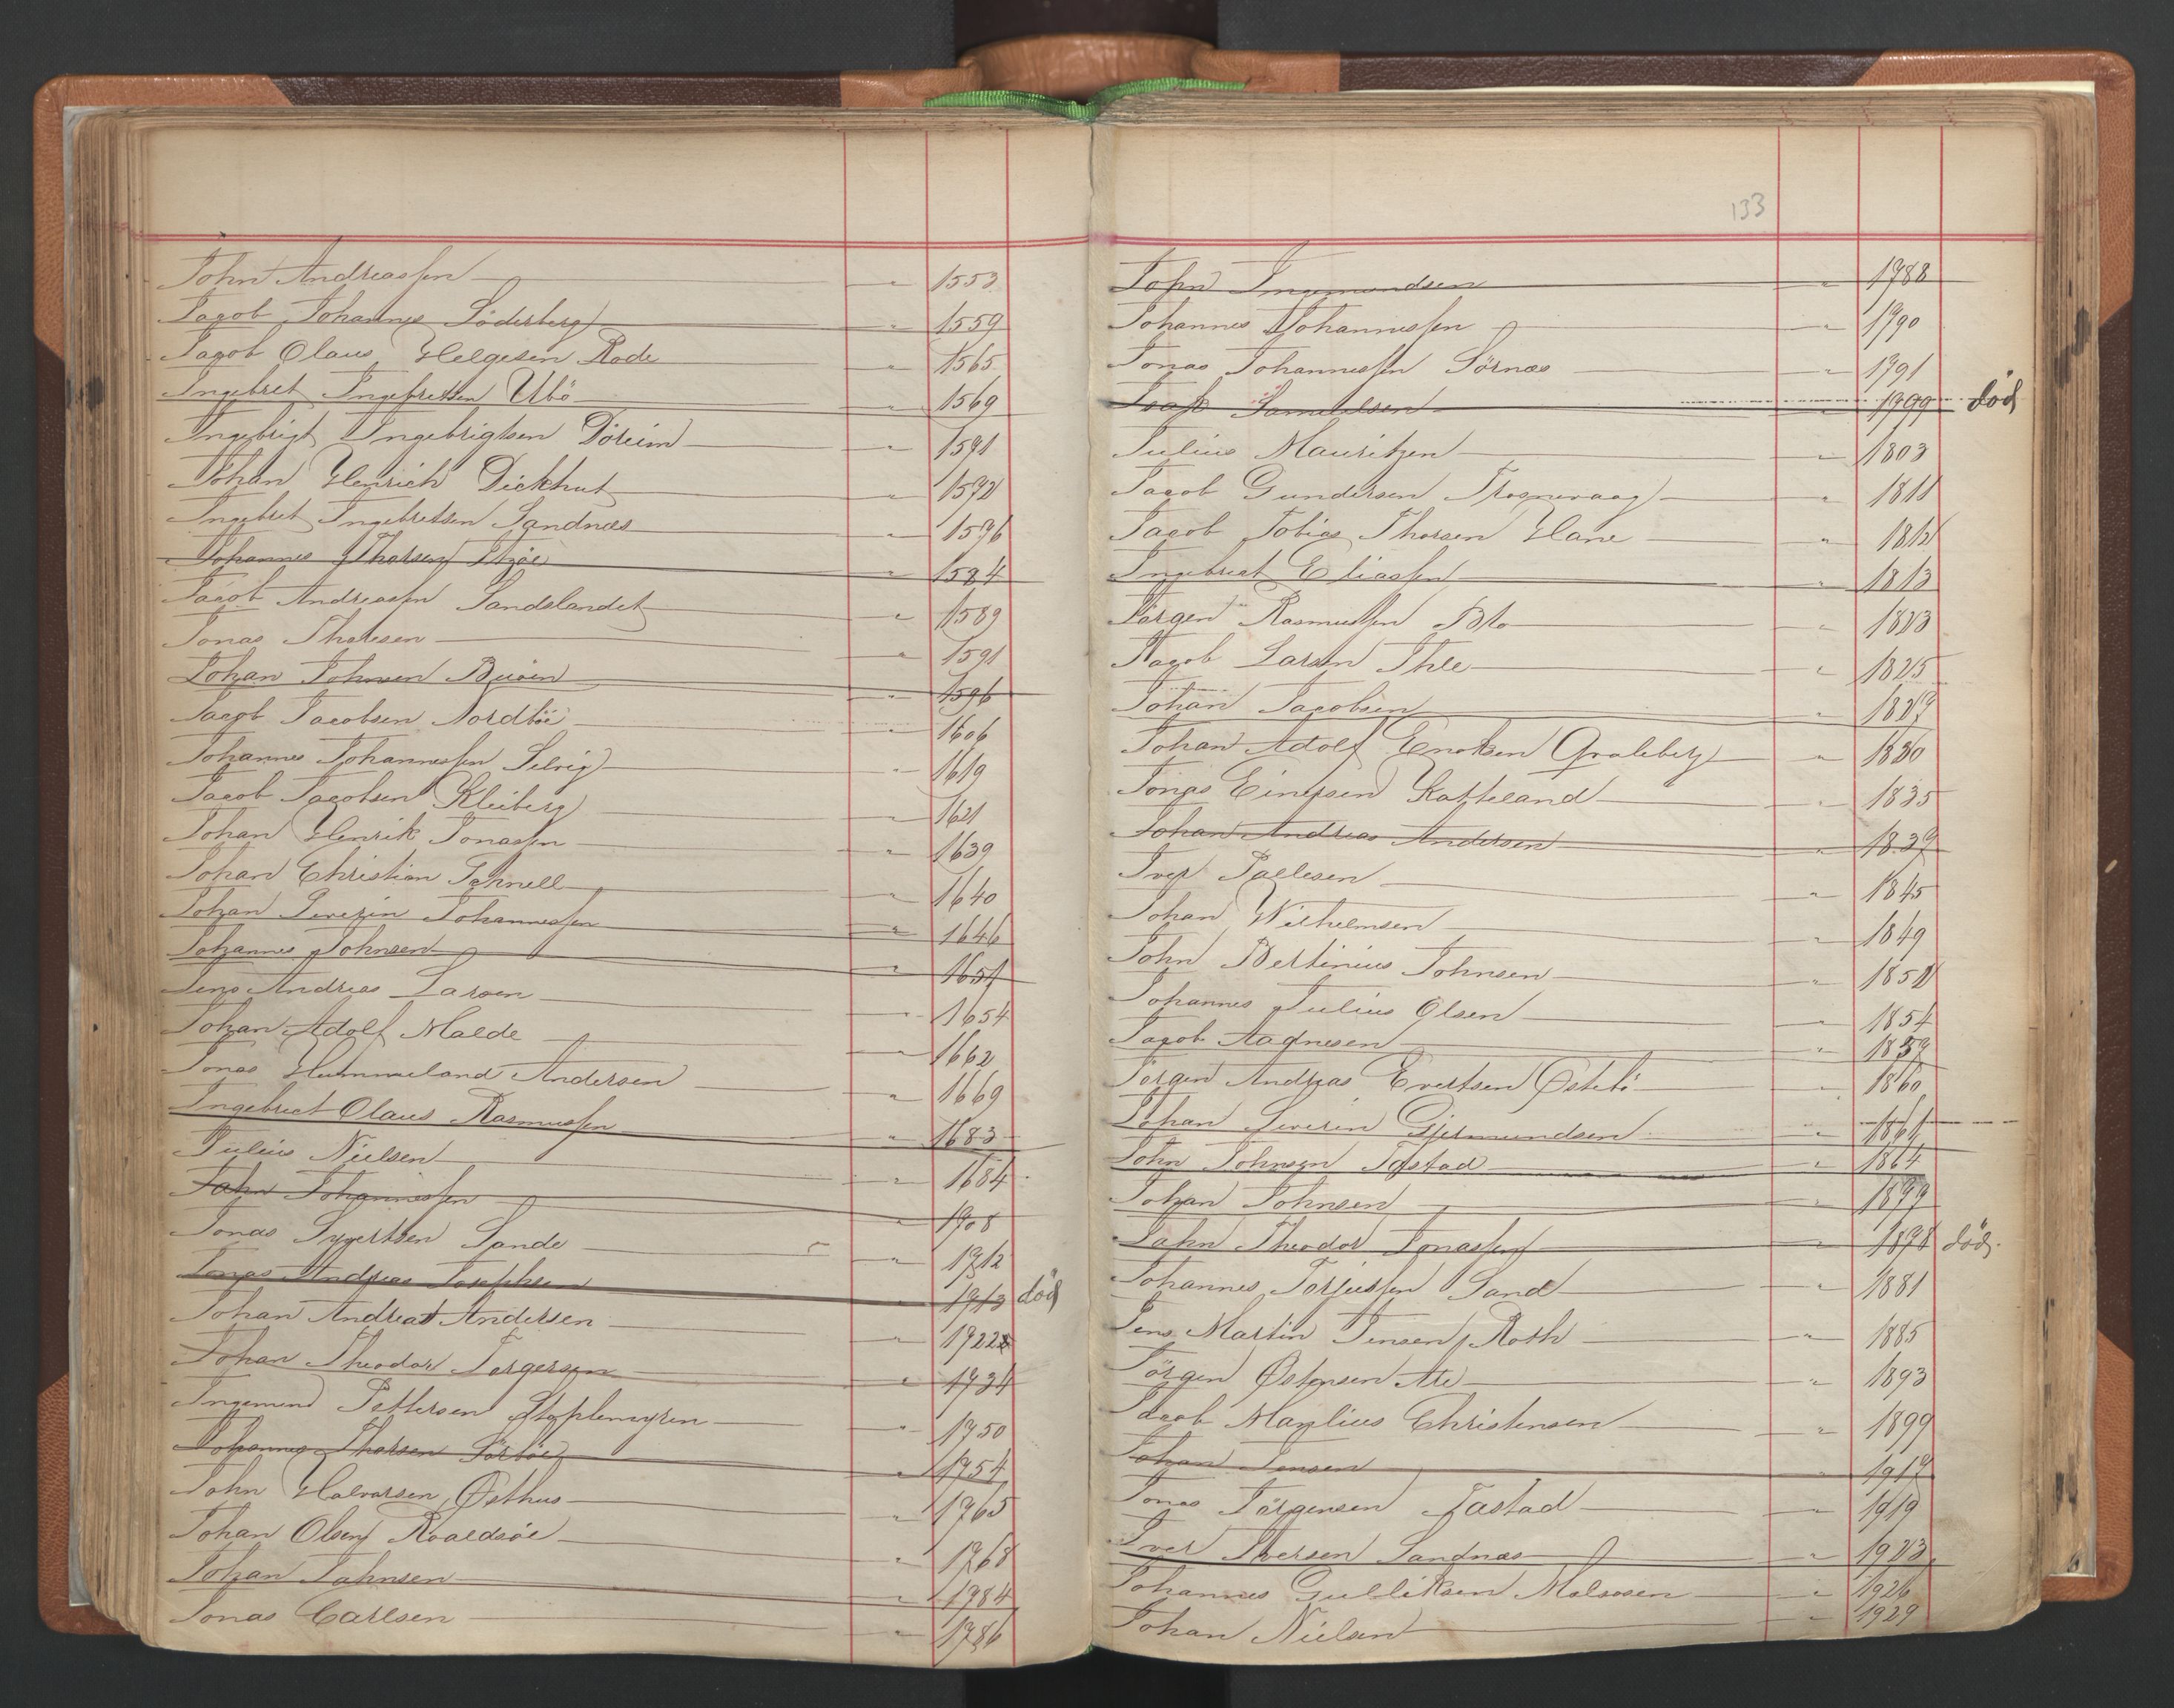 John Andreassen " 1553
Jacob Johannes Söderberg " 1559
Jacob Olaus Helgesen Rode " 1565
Ingebret Ingebretsen Ubö " 1569
Ingebrigt Ingebrigtsen Döreim " 1571
Johan Henrich Dickhut " 1572
Ingebret Ingebretsen Sandnæs " 1576
Johannes Thorsen " 1584
Jacob Andreassen Sandslandet " 1589
Jonas Thoresen " 1591
Johan Johnsen " 1596
Jacob Jacobsen Nordböe " 1606
Johannes Johannessen Selvig " 1619
Jacob Jacobsen Kleiberg " 1621
Johan Henrik Jonassen " 1639
Johan Christian " 1640
Johan Severin Johannessen " 1646
Johannes Johnsen " 1651
Jens Andreas Larsen " 1654
Johan Adolf Malde " 1662
Jonas Hummeland Andersen " 1669
Ingebrect Olaus Rasmussen " 1683
Julius Nielsen " 1684
John Johannessen " 1708
Jonas Syvertsen Sande " 1712
Jonas Andreas Josephsen " 1713 död
Johan Andreas Andersen " 1722
Johan Theodor Torgersen " 1734
Ingemund Pettersen " 1750
Johannes Thorsen Sörböe " 1754
John Halvorsen Østhus " 1765
Johan Olsen Roaldsöe " 1768
Johan Johnsen " 1784
Jonas Carlsen " 1786
133
John Ingemundsen " 1788
Johannes Johannessen " 1790
Jonas Johannessen Sörnæs " 1791
Samuelsen " 1799 död
Julius Mauritzen " 1803
Jacob Gundersen " 1811
Jacob Tobias Thorsen Hane " 1812
Ingebrect Eliassen " 1813
Jörgen Rasmussen Bto " 1823
Jacob Larsen Ihle " 1825
Johan Jacobsen " 1827
Johan Adolf Enoksen Graleberg " 1830
Jonas Einersen Katteland " 1835
Johan Andreas Andersen " 1837
Iver Pallesen " 1845
Johan Wilhelmsen " 1849
John Bertinius Johnsen " 1852
Johannes Julius Olsen " 1854
Jacob Aagnesen " 1857
Jörgen Andreas Evertsen Östebö " 1860
Johan Severin Gjermundsen " 1861
John Johnsen Tastad " 1864
Johan Johnsen " 1877
John Theodor Jonassen " 1878 död.
Johannes Torjussen Sand " 1881
Jens Martin Jensen Roth " 1885
Jörgen Östensen Are " 1893
Jacob Maylius Christensen " 1899
Johan Jensen " 1917
Jonas Jörgensen Tastad " 1919
Iver Iversen Sandnæs " 1923
Johannes Gulliksen Molaosen " 1926
Johan Nielsen " 1929